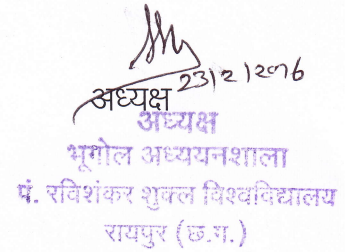 23/2/2016
अध्यक्ष
अध्यक्ष
भूगोल अध्ययनशाला
पं. रविशंकर शुक्ल विश्वविद्यालय
रायपुर (छ.ग.)